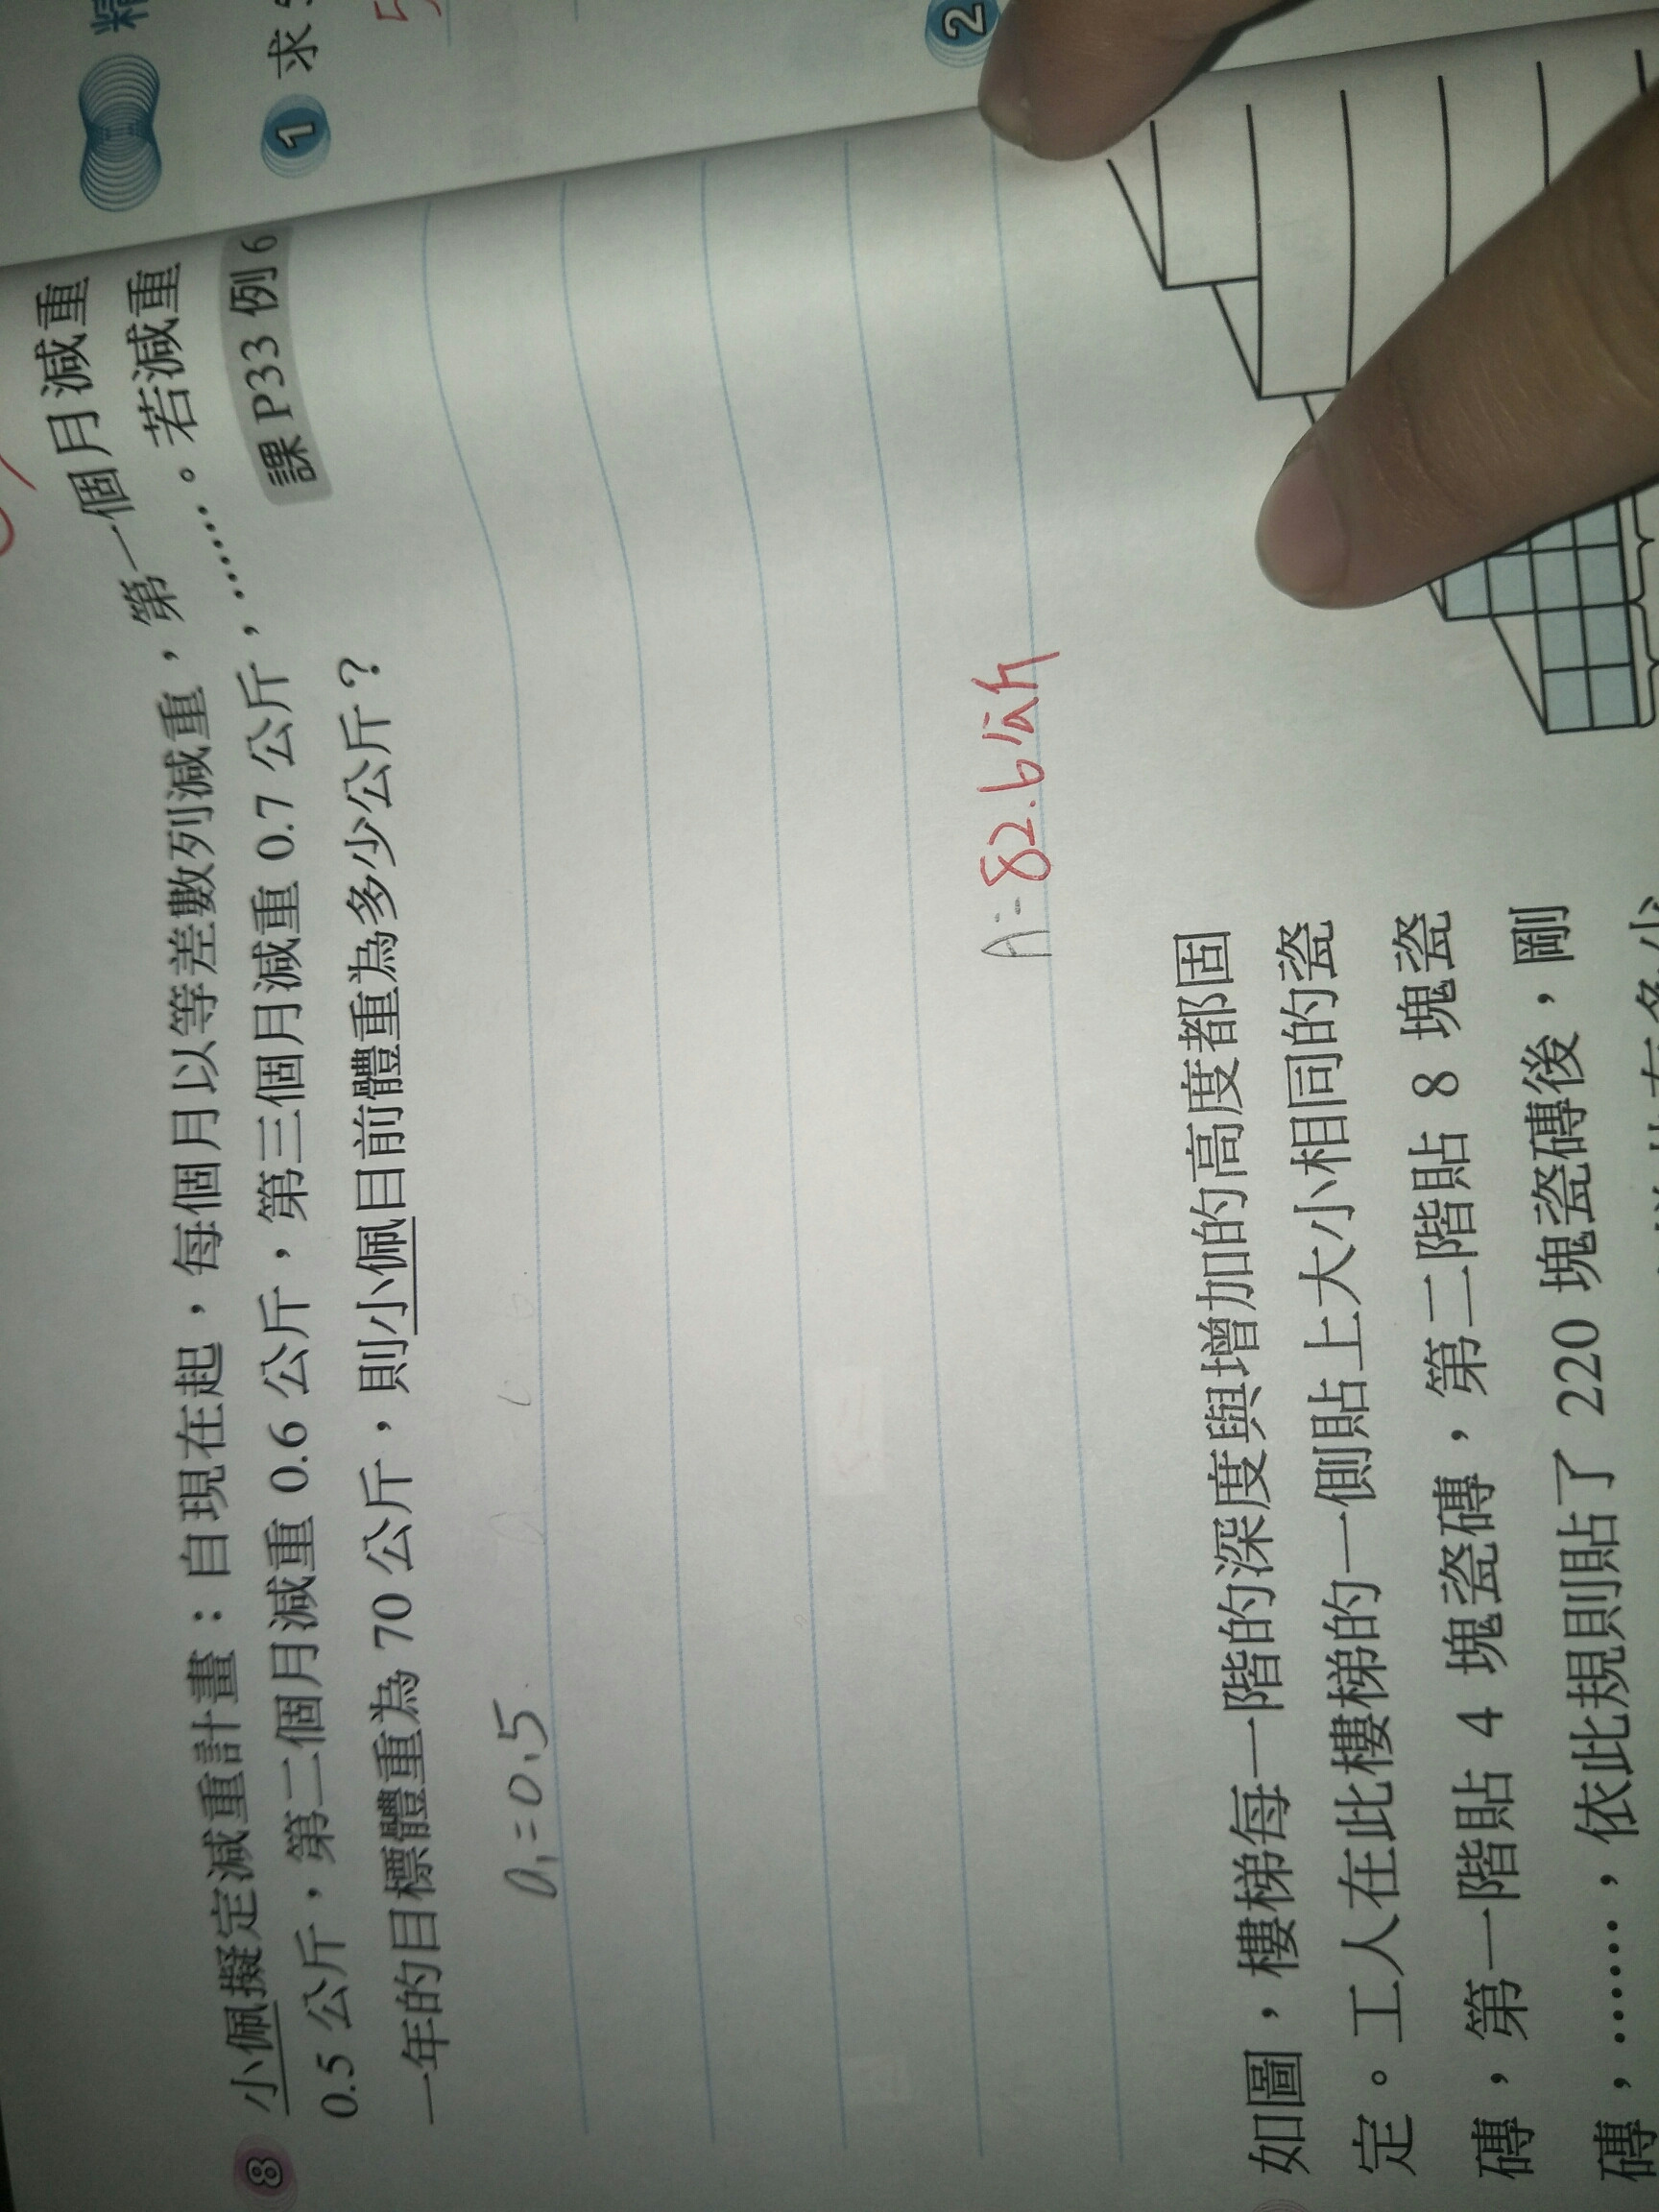 精
1 求
5
8 小佩擬定減重計畫：自現在起，每個月以等差數列減重，第一個月減重
0.5 公斤，第二個月減重 0.6 公斤，第三個月減重 0.7 公斤，……。若減重
一年的目標體重為 70 公斤，則小佩目前體重為多少公斤？
課 P33 例 6
a₁=0.5
A：82.6公斤
2
如圖，樓梯每一階的深度與增加的高度都固
定。工人在此樓梯的一側貼上大小相同的瓷
磚，第一階貼 4 塊瓷磚，第二階貼 8 塊瓷
磚，……，依此規則貼了 220 塊瓷磚後，剛